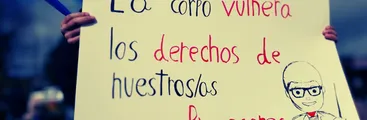 La corpo vulnera
los derechos de
nuestros/as